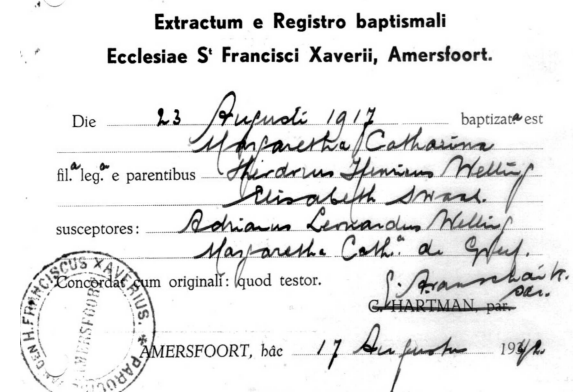 Extractum e Registro baptismali
Ecclesiae St Francisci Xaverii, Amersfoort.
Die 23 Augusti 1917 baptizata est
Margaretha Catharina
fil.a leg.a e parentibus Henricus Welling
Elisabeth Swaal.
susceptores: Adrianus Leonardus Welling
Margaretha Cath.a de
Concordat cum originali: quod testor.
G. HARTMAN, par.
AMERSFOORT, hâc 17 Augustu 1942
FRANCISCUS XAVERIUS. AMERSFOORT